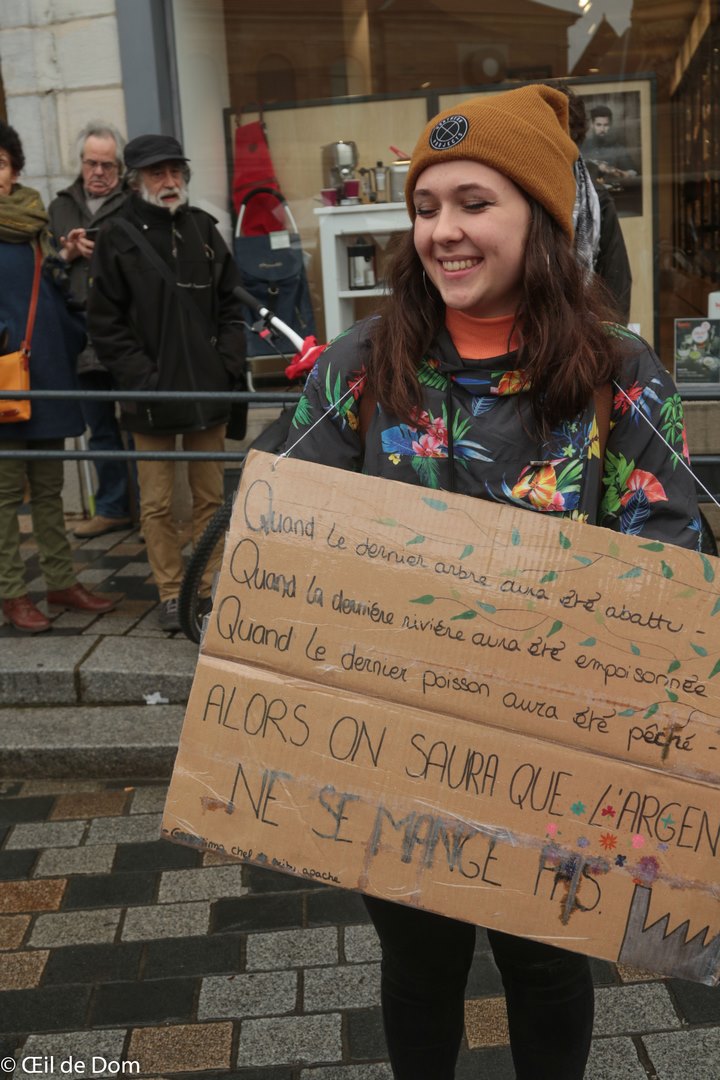 Quand le dernier arbre aura été abattu -
Quand la dernière rivière aura été empoisonnée
Quand le dernier poisson aura été pêché -
ALORS ON SAURA QUE L'ARGEN
NE SE MANGE PAS.
apache
© Œil de Dom